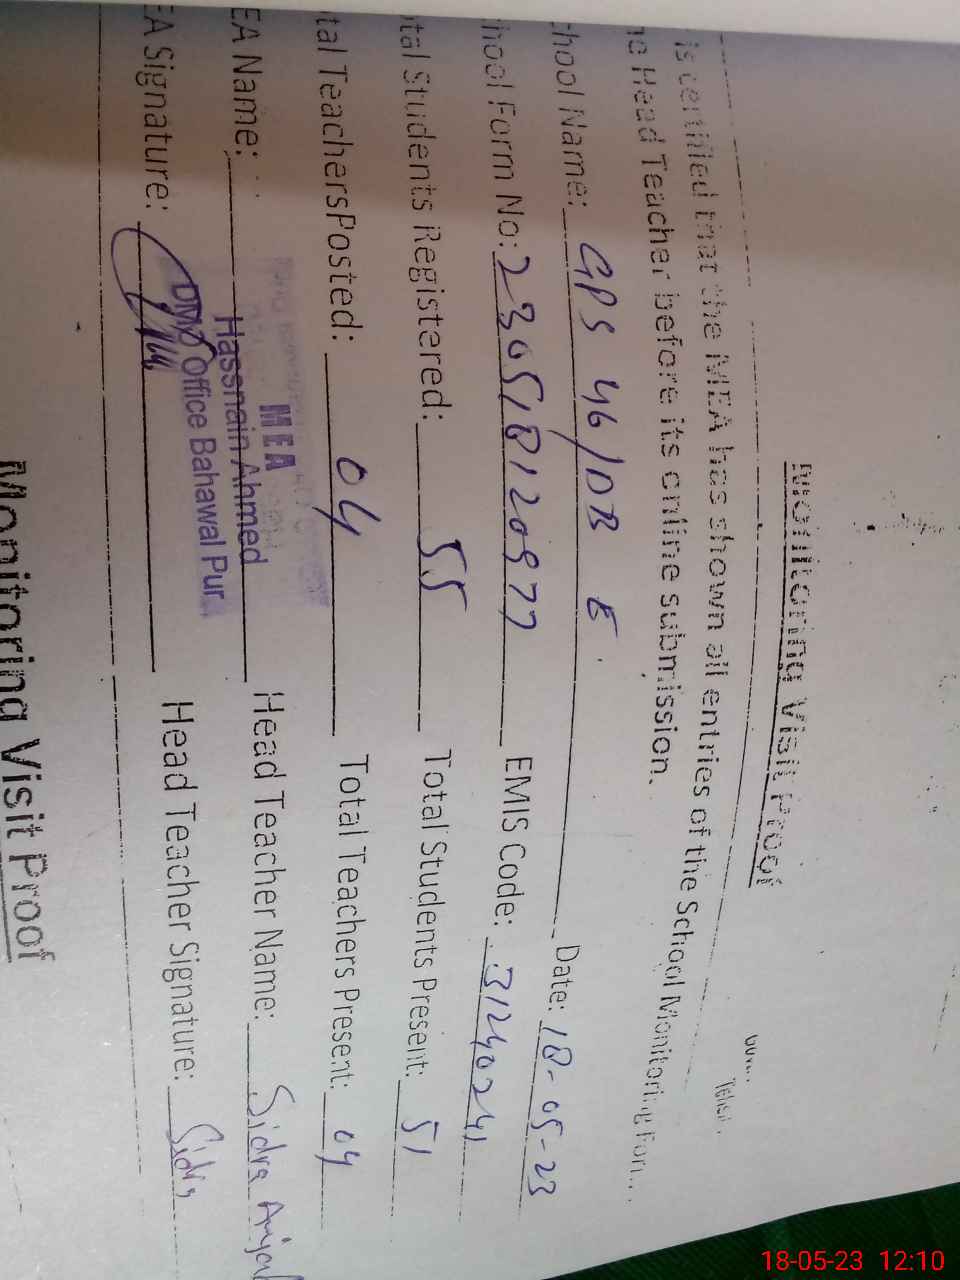 Monitoring Visit Proof
is certified that the MEA has shown all entries of the School Monitoring For
Head Teacher before its online submission.
hool Name: GPS 46/DB E Date: 18-05-23
hool Form No: 230518120977 EMIS Code: 31240241
tal Students Registered: 55 Total Students Present: 51
tal TeachersPosted: 04 Total Teachers Present: 04
MEA
EA Name: Hassnain Ahmed Head Teacher Name: Sidra
DMO Office Bahawal Pur
EA Signature: Head Teacher Signature: Sidra
Monitoring Visit Proof
18-05-23 12:10